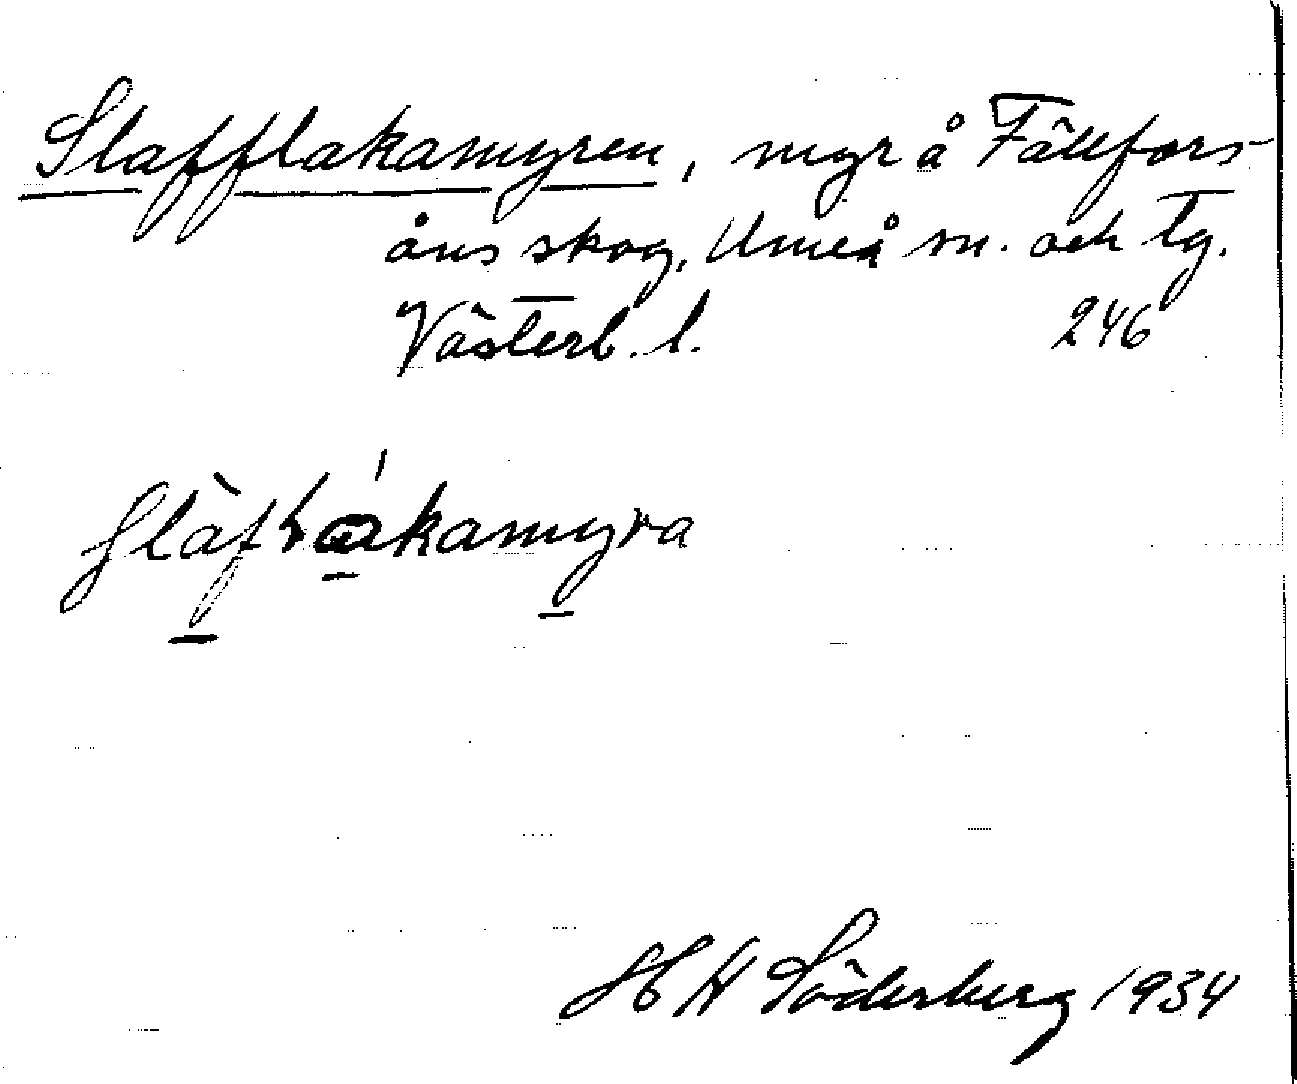 Slafflakamyren, myr å Fällfors-
åns skog, Umeå sn. och tg.
Västerb. l. 246
H W Söderberg 1934